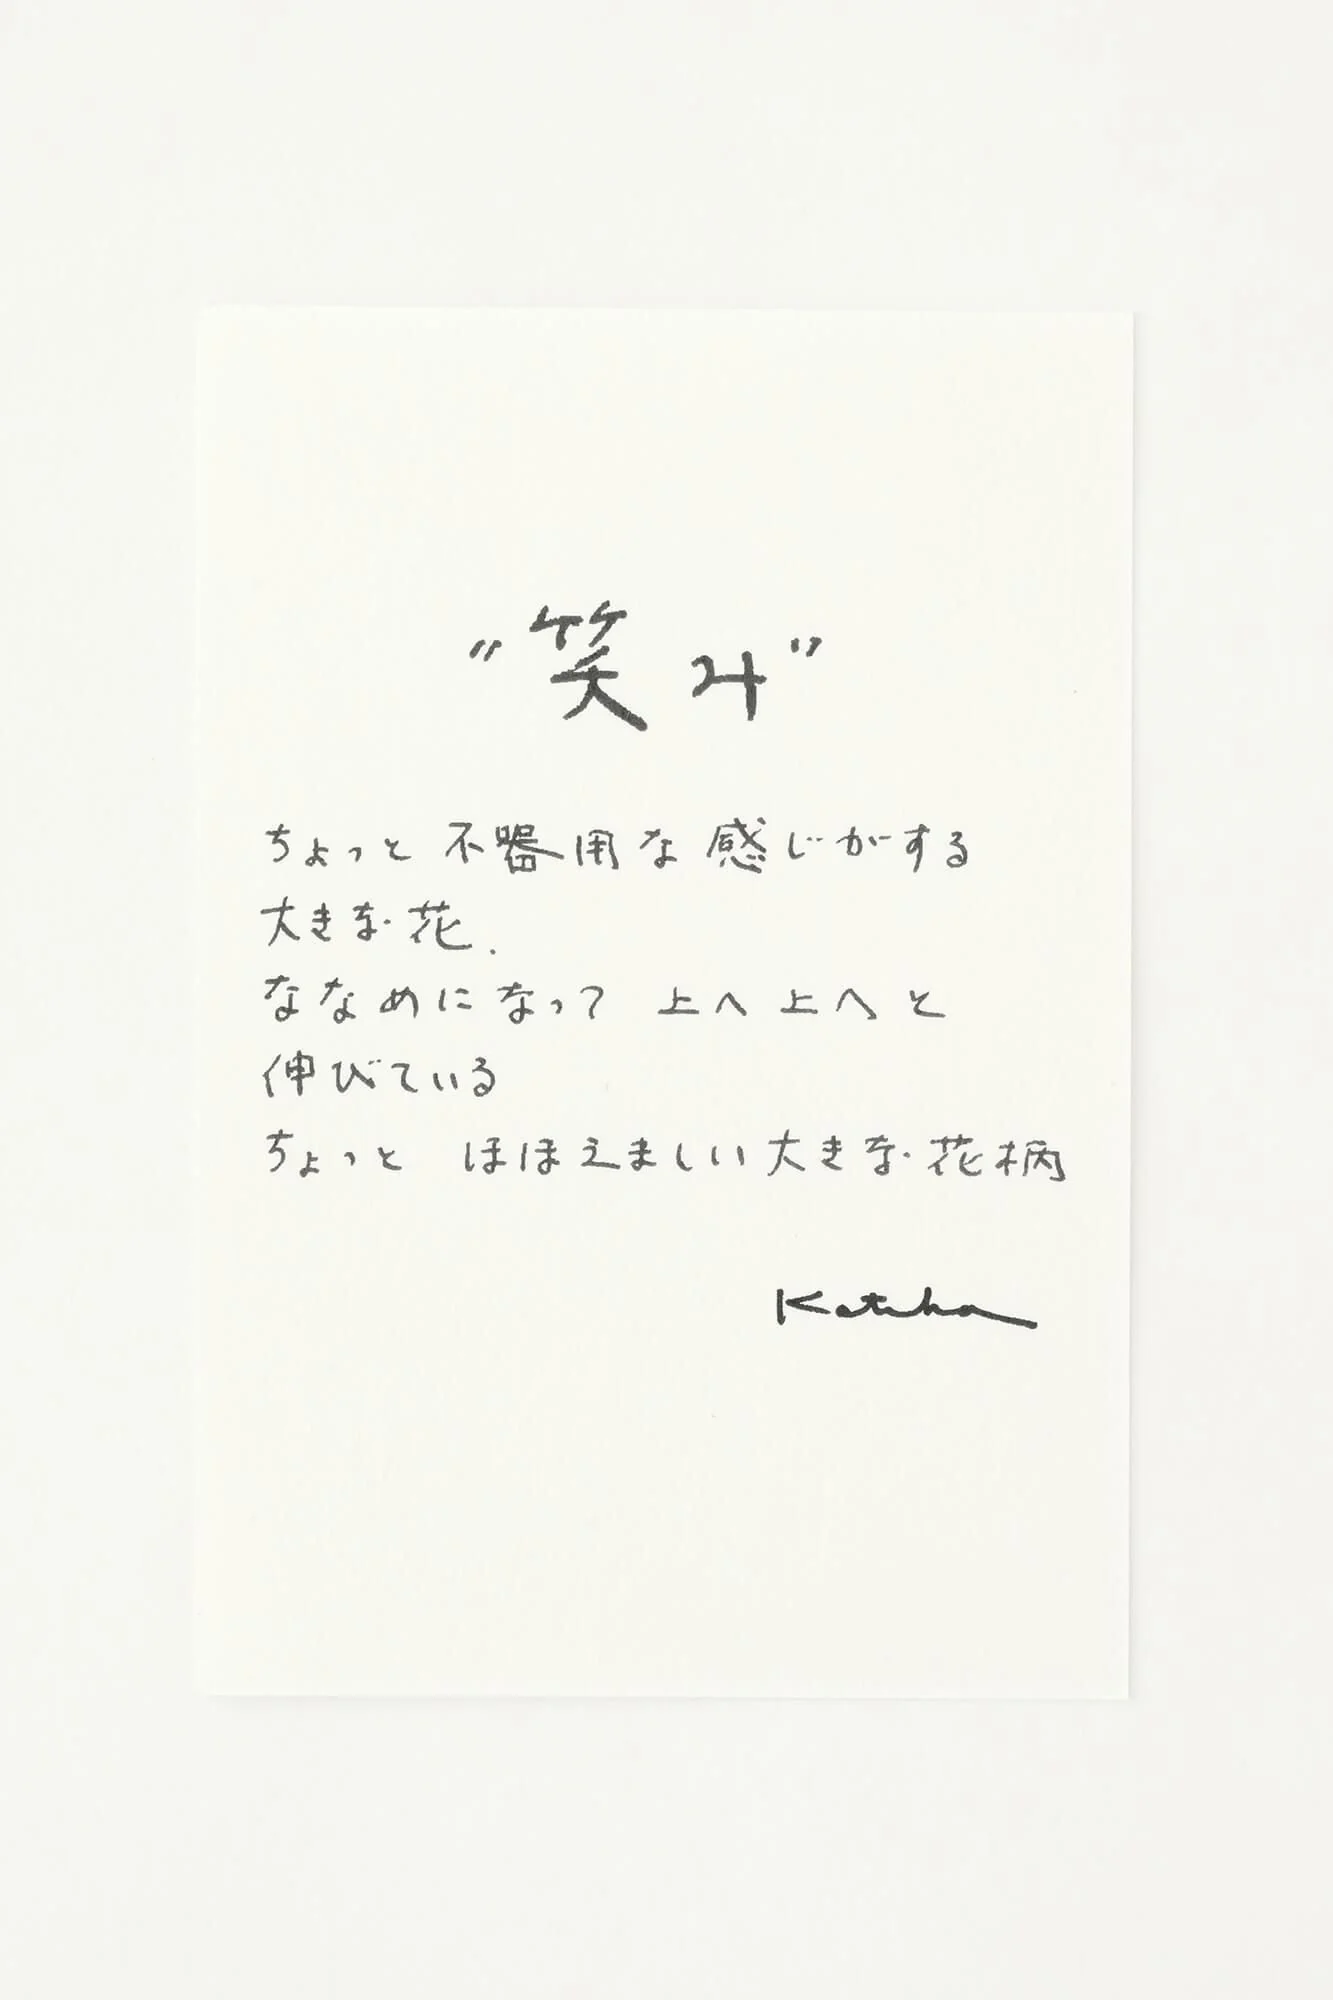 "笑み"
ちょっと 不器用な 感じがする
大きな花.
ななめになって 上へ上へと
伸びている
ちょっと ほほえましい大きな花柄
Katsuha